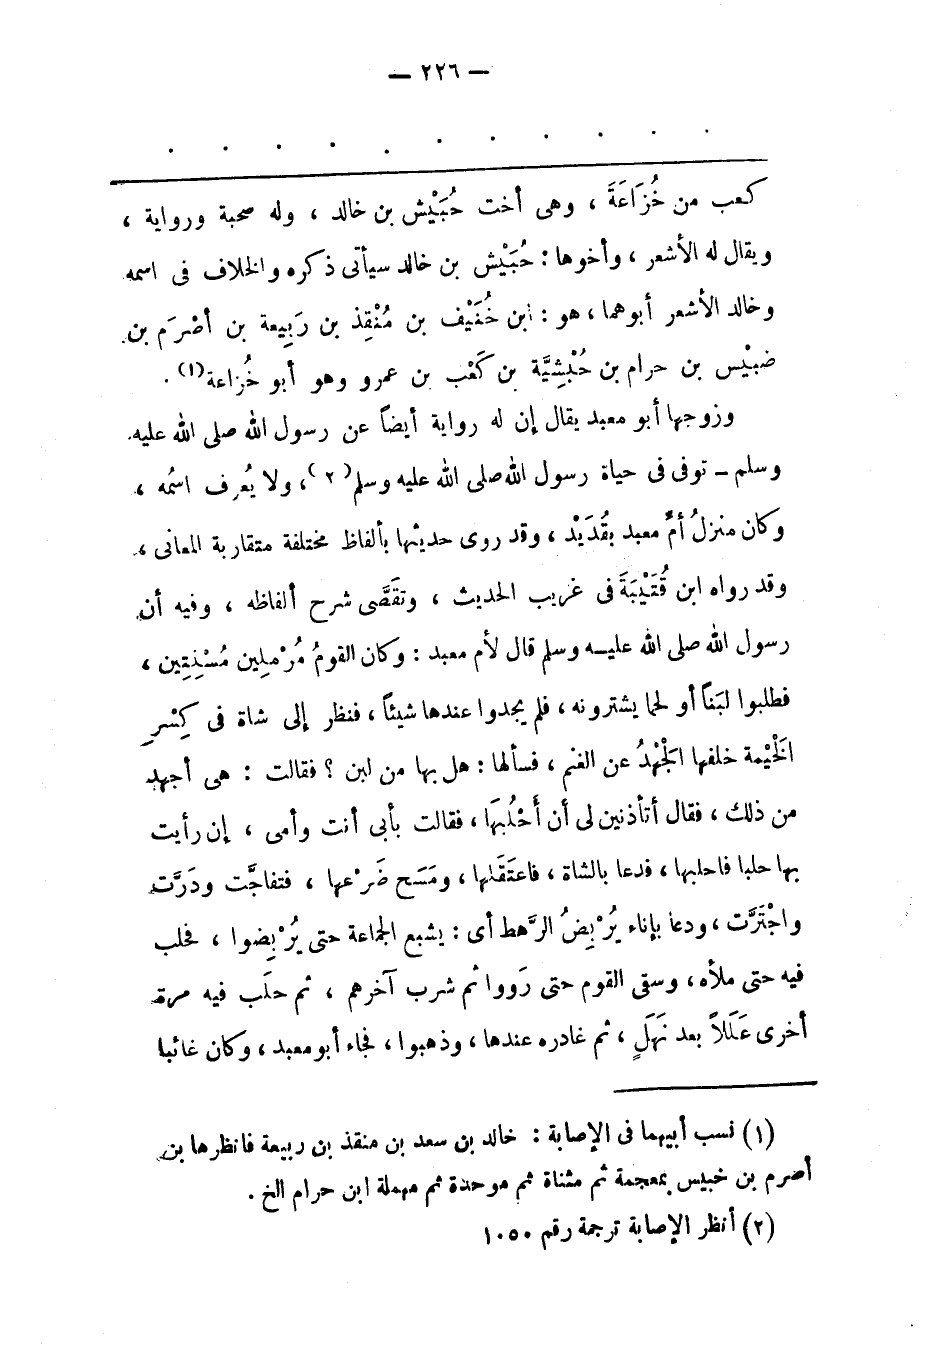 — ٢٢٦ —
. . . . . . . . . . .
كعب من خُزَاعَةَ ، وهى أخت حُبَيْش بن خالد ، وله صحبة ورواية ،
ويقال له الأشعر ، وأخوها : حُبَيْش بن خالد سيأتى ذكره والخلاف فى اسمه
وخالد الأشعر أبوهما ، هو : ابن خُنَيْف بن مُنْقِذ بن رَبِيعة بن أَصْرَم بن
ضَبِيْس بن حرام بن حُبْشِيَّة بن كَعْب بن عمرو وهو أبو خُزاعة (١) .
وزوجها أبو معبد يقال إن له رواية أيضاً عن رسول الله صلى الله عليه
وسلم ــ توفى فى حياة رسول الله صلى الله عليه وسلم (٢) ، ولا يُعرف اسمُه ،
وكان منزلُ أمِّ معبد بقُدَيْد ، وقد روى حديثها بألفاظ مختلفة متقاربة المعانى ،
وقد رواه ابن قُتَيْبَةَ فى غريب الحديث ، وتقَصَّى شرح ألفاظه ، وفيه أن
رسول الله صلى الله عليــه وسلم قال لأم معبد : وكان القومُ مُرْملِين مُسْنِتِين ،
فطلبوا لبَناً أو لحما يشترونه ، فلم يجدوا عندها شيئاً ، فنظر إلى شاة فى كِسْرِ
الَخْيْمة خلفها الَجْهْدُ عن الغنم ، فسألها : هل بها من لبن ؟ فقالت : هى أجهد
من ذلك ، فقال أتأذنين لى أن أَحْلُبَهَا ، فقالت بأبى أنت وأمى ، إن رأيت
بها حلبا فاحلبها ، فدعا بالشاة ، فاعتَقَلها ، ومَسَح ضَرْعها ، فتفاجَّت ودَرَّت
واجْتَرَّت ، ودعا بإناء يُرْبِضُ الرَّهط أى : يشبع الجماعة حتى يُرْبِضوا ، فحلب
فيه حتى ملأه ، وسقى القوم حتى رَووا ثم شرب آخرهم ، ثم حلَب فيه مرة
أخرى عَلَلاً بعد نَهَلٍ ، ثم غادره عندها ، وذهبوا ، فجاء أبو معبد ، وكان غائبا
(١) نسب أبيهما فى الإصابة : خالد بن سعد بن منقذ بن ربيعة فانظرها بن
أصرم بن خبيس بمعجمة ثم مثناة ثم موحدة ثم مهملة ابن حرام الخ .
(٢) أنظر الإصابة ترجمة رقم ١٠٥٠